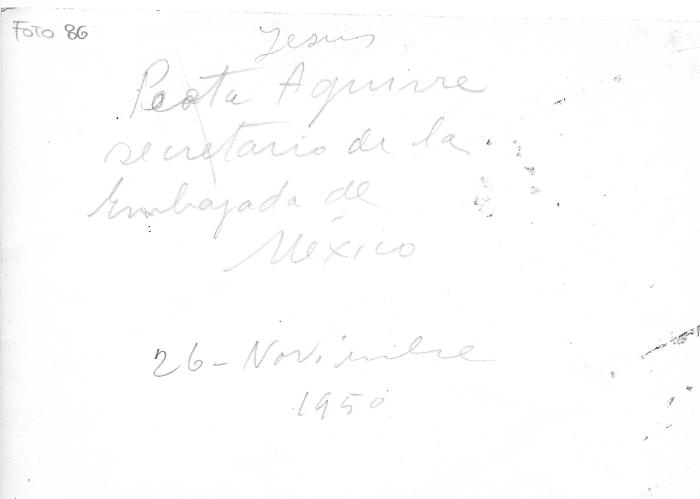 Foto 86
Jesus
Aguirre
secretario de la
Embajada de
México
26-Noviembre
1950